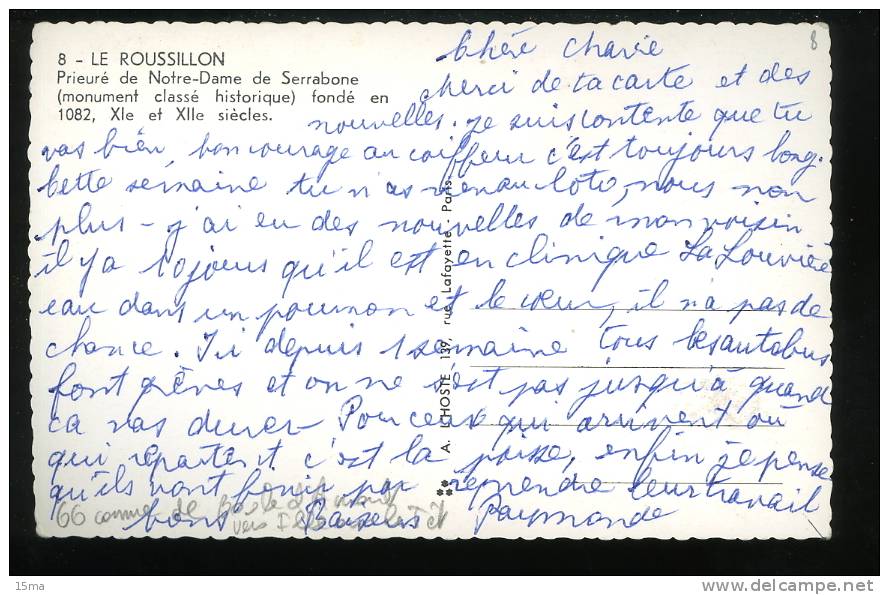 8 - LE ROUSSILLON
Prieuré de Notre-Dame de Serrabone
(monument classé historique) fondé en
1082, XIe et XIIe siècles.
8
Chère Charie
Merci de ta carte et des
nouvelles. je suis contente que tu
vas bien, bon courage au coiffeur c'est toujours long.
Cette semaine tu n'as rien au loto, nous non
plus - j'ai eu des nouvelles de mon voisin
il y a 10 jours qu'il est en clinique La Louvière
eau dans un poumon et le cœur, il n'a pas de
chance. Ici depuis 1 semaine tous les autobus
font grèves et on ne s'est pas jusqu'à quand
ca vas durer - Pour ceux qui arrivent ou
qui repartent c'est la poisse, enfin je pense
qu'ils vont finir par reprendre leur travail
bons Baisers Raymonde
66 commune de Boule d'Amont
vers Ille sur Têt
A. L'HOSTE, 139, rue Lafayette - Paris
15ma
http://www.delcampe.net